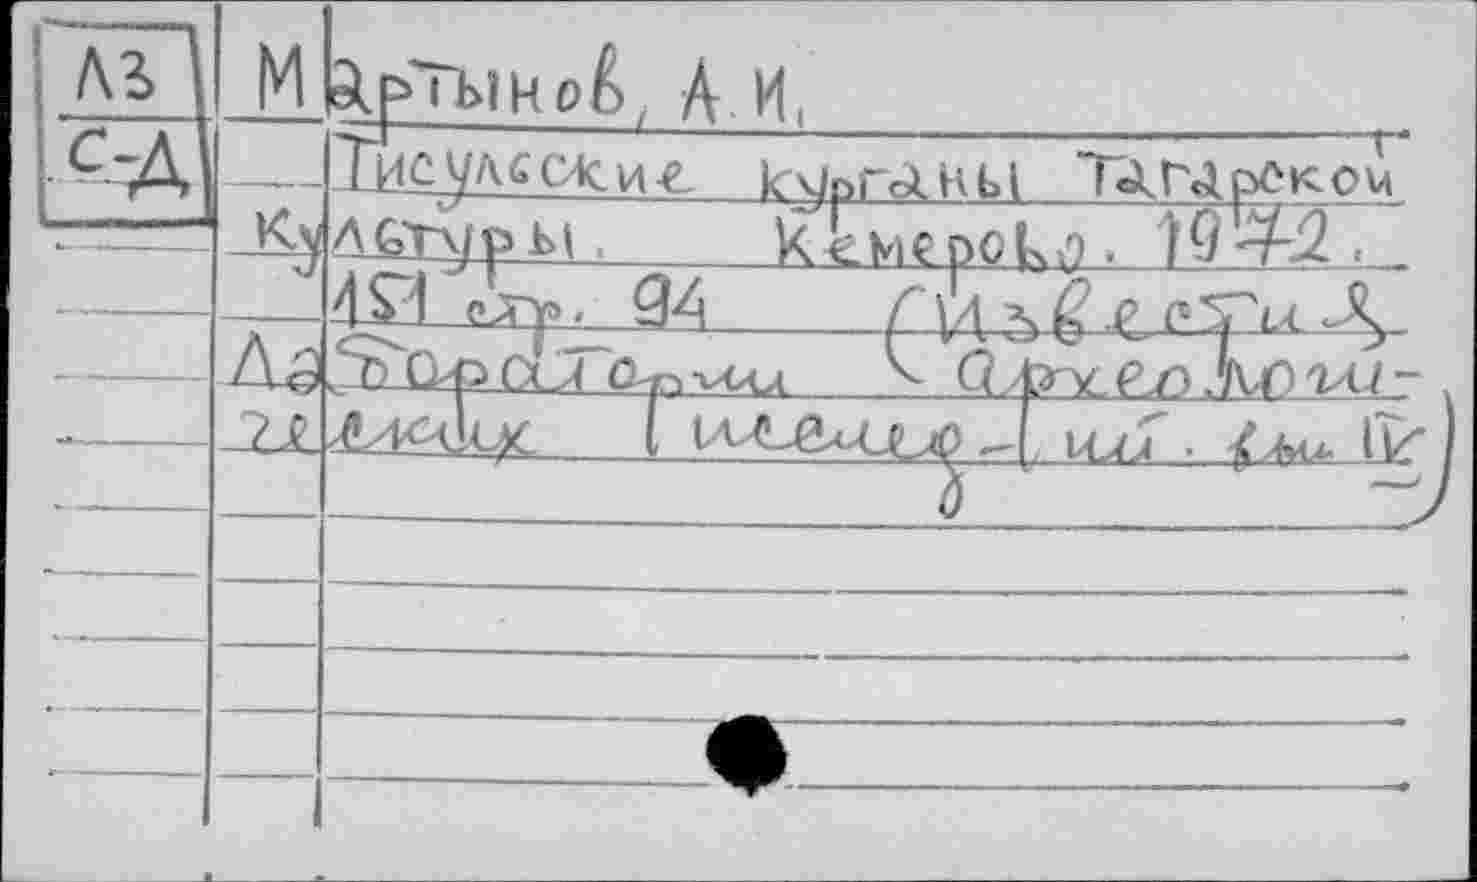 ЛЗ
С-Д
Мартынов, А.И.
Тисульские курганы Тагарской
культуры. Кемерово. 1972.
151 стр. 94 (Известия
Лаборатории археологи-
ческих исследований. Вып. IV)